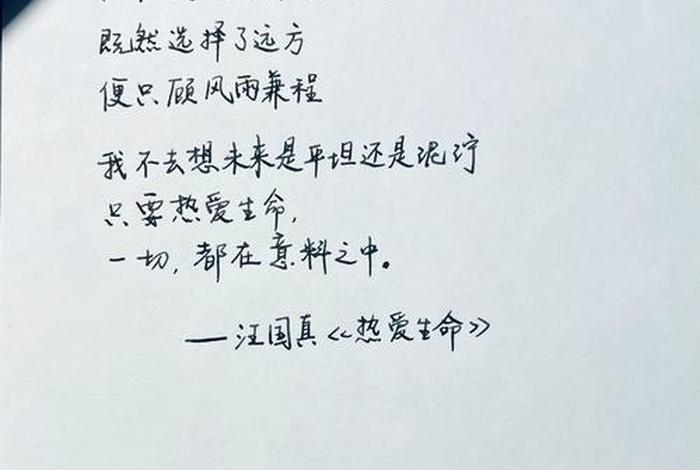 既然选择了远方
便只顾风雨兼程
我不去想未来是平坦还是泥泞
只要热爱生命,
一切,都在意料之中。
——汪国真《热爱生命》